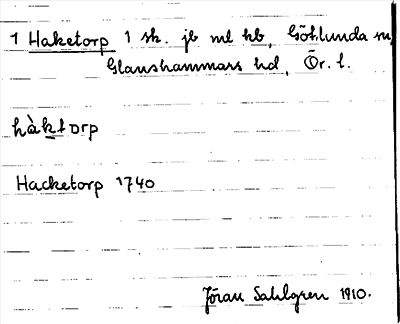 1 Haketorp 1 sk. jb ml kb, Götlunda sn,
Glanshammars hd, Ör. l.
hàktorp
Hacketorp 1740
Jöran Sahlgren 1910.